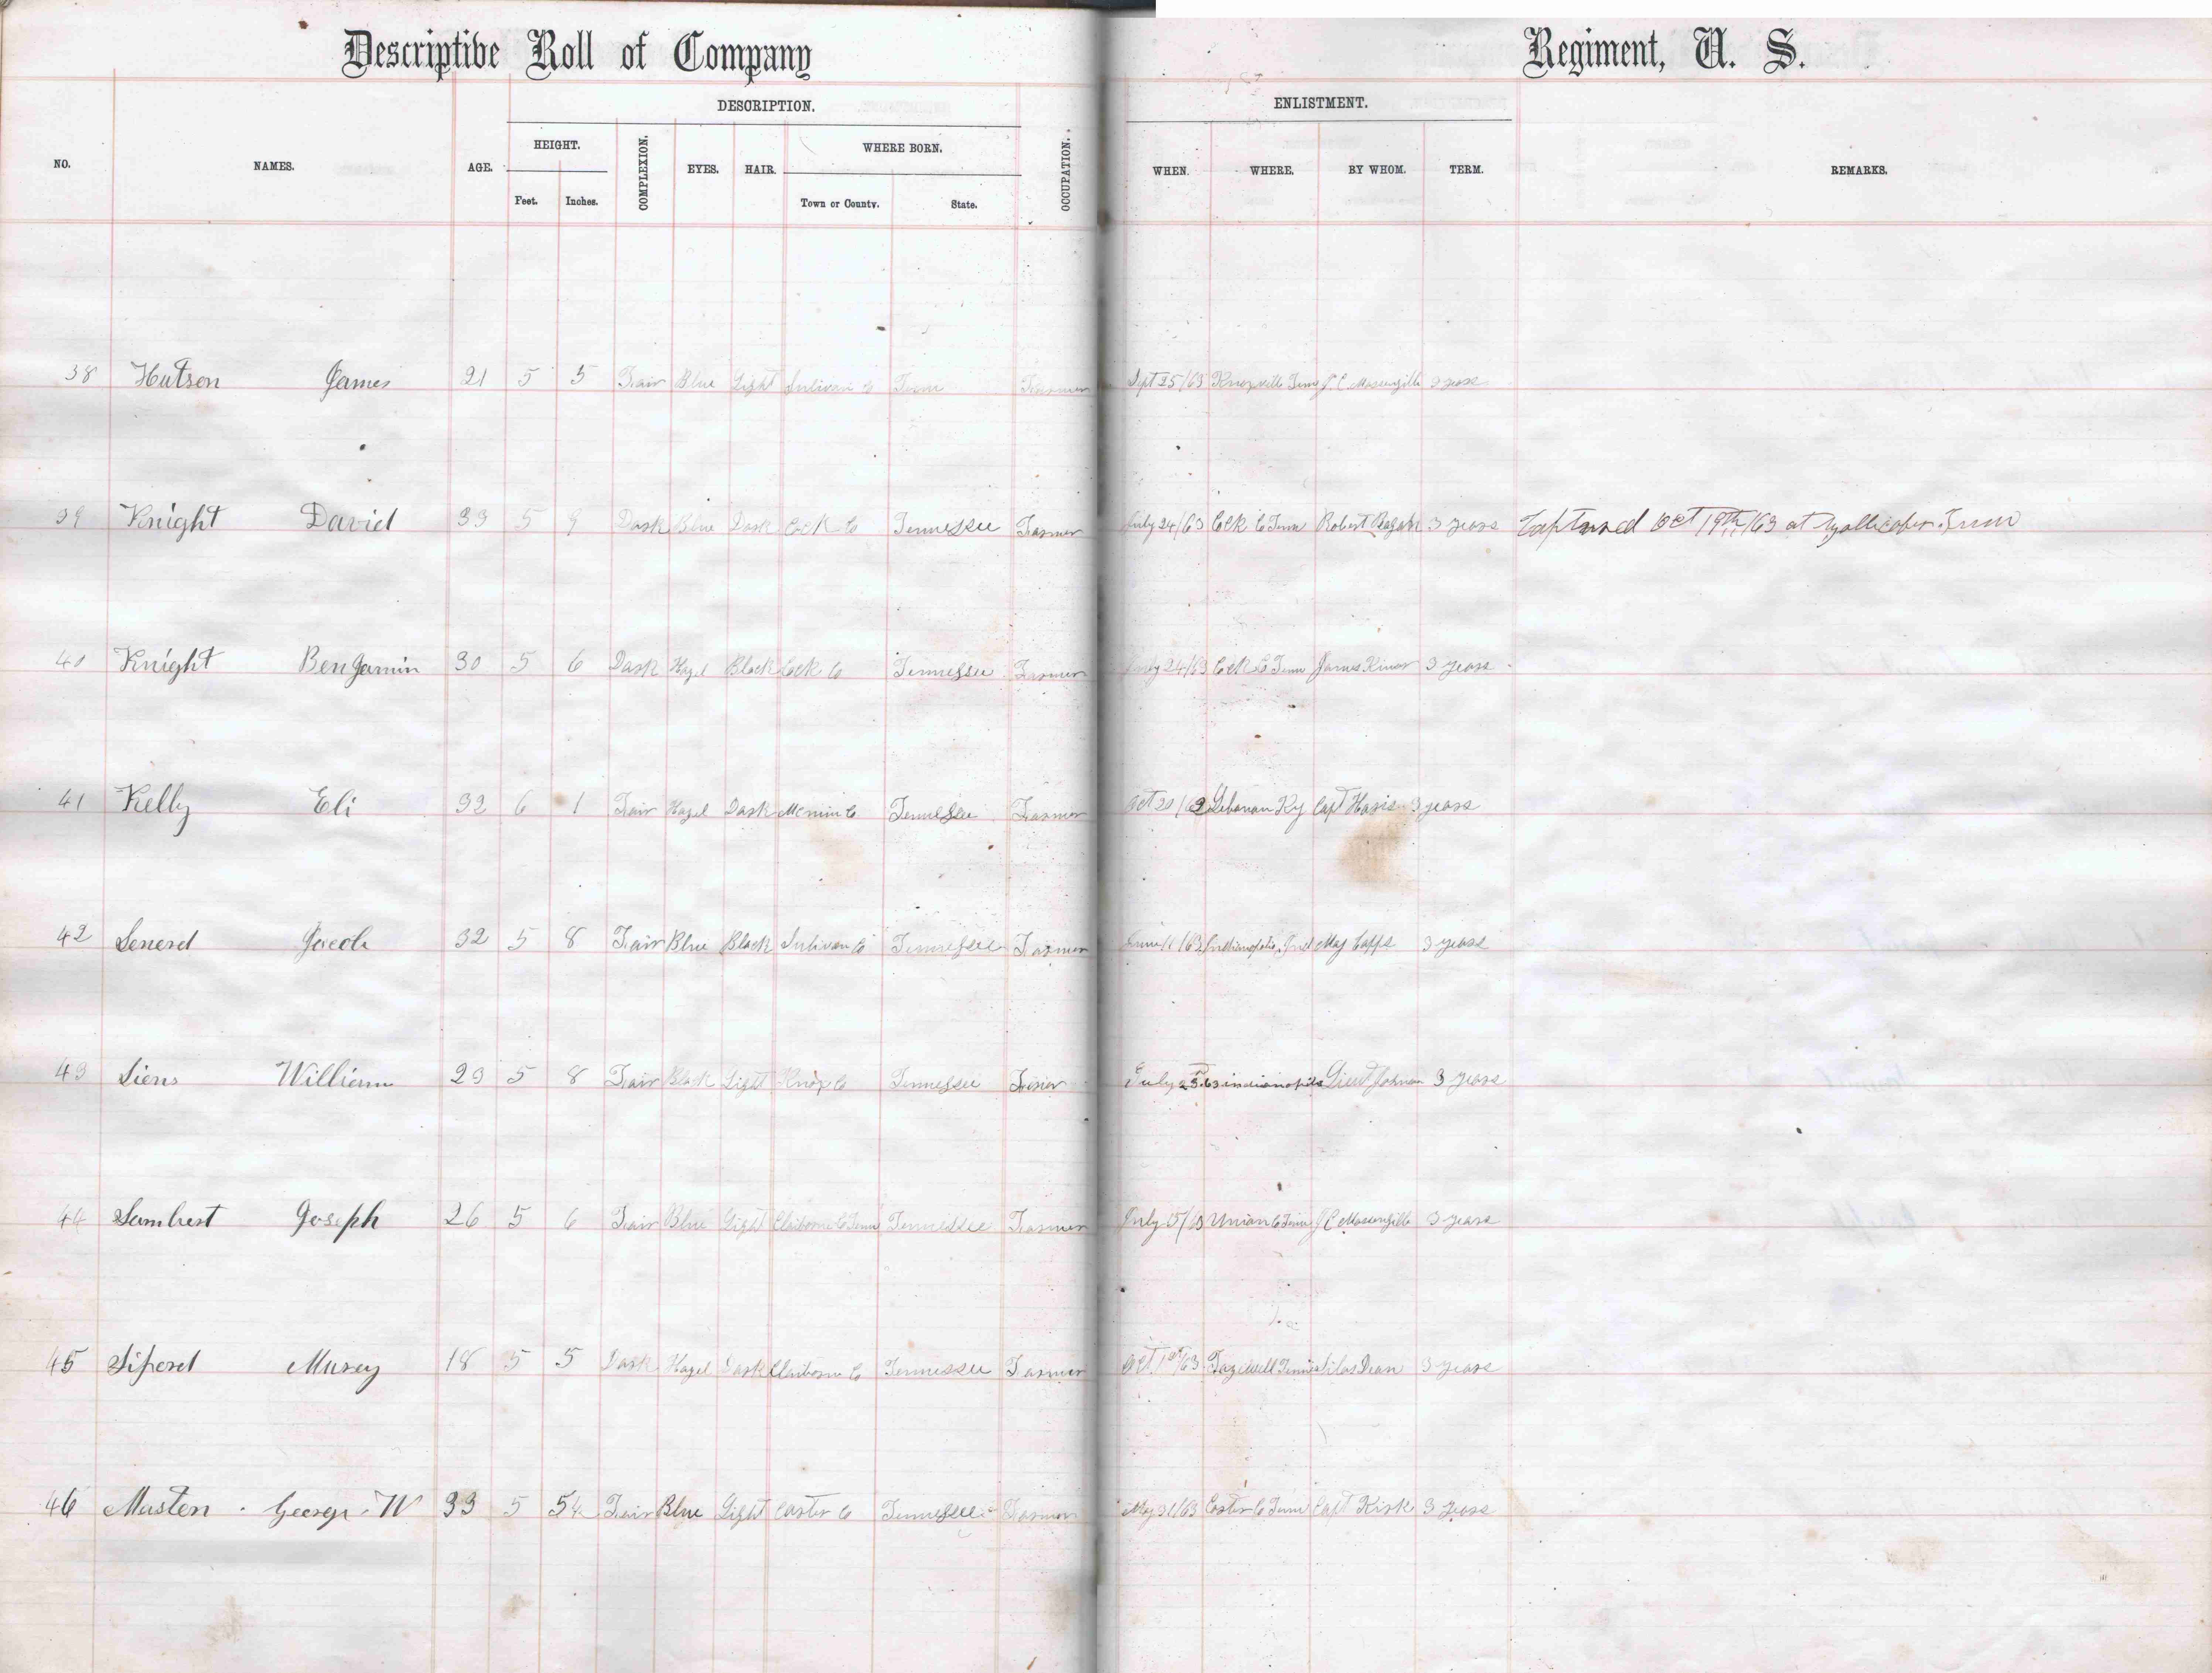 Descriptive Roll of Company Regiment, U. S.
DESCRIPTION. ENLISTMENT.
NO. NAMES. AGE. HEIGHT. COMPLEXION. EYES. HAIR. WHERE BORN. OCCUPATION. WHEN. WHERE. BY WHOM. TERM. REMARKS.
Feet. Inches. Town or County. State.
38 Hutson James 21 5 5 Fair Blue Light Sulivan Co Tenn Farmer Sept 25/63 Knoxville Tenn J. C. Massengille 3 years
39 Knight David 33 5 9 Dark Blue Dark Cock Co Tennessee Farmer July 24/63 Cock Co Tenn Robert 3 years Captured Oct 19th/63 at Tenn
40 Knight Benjamin 30 5 6 Dark Hazel Black Cock Co Tennessee Farmer July 24/63 Cock Co Tenn James Kiner 3 years
41 Kelly Eli 32 6 1 Fair Hazel Dark McMinn Co Tennessee Farmer Oct 20/62 Lebanan Ky Capt Haris 3 years
42 Lenerd Jacob 32 5 8 Fair Blue Black Sulivan Co Tennessee Farmer /63 Indianopolis, Ind May Capps 3 years
43 Liens William 23 5 8 Fair Black Light Knox Co Tennessee July 25 63 indianopils Lieut Johnson 3 years
44 Lambert Joseph 26 5 6 Fair Blue Light Claiborne Co Tenn Tennessee Farmer July 15/63 Union Co Tenn J C Massengille 3 years
45 Liperd Murey 18 5 5 Dark Hazel Dark Claiborne Co Tennessee Farmer Oct 1st/63 Tazewell Tenn Silas Dean 3 years
46 Musten George W 33 5 5½ Fair Blue Light Carter Co Tennessee Farmer May 31/63 Carter Co Tenn Capt Kirk 3 years